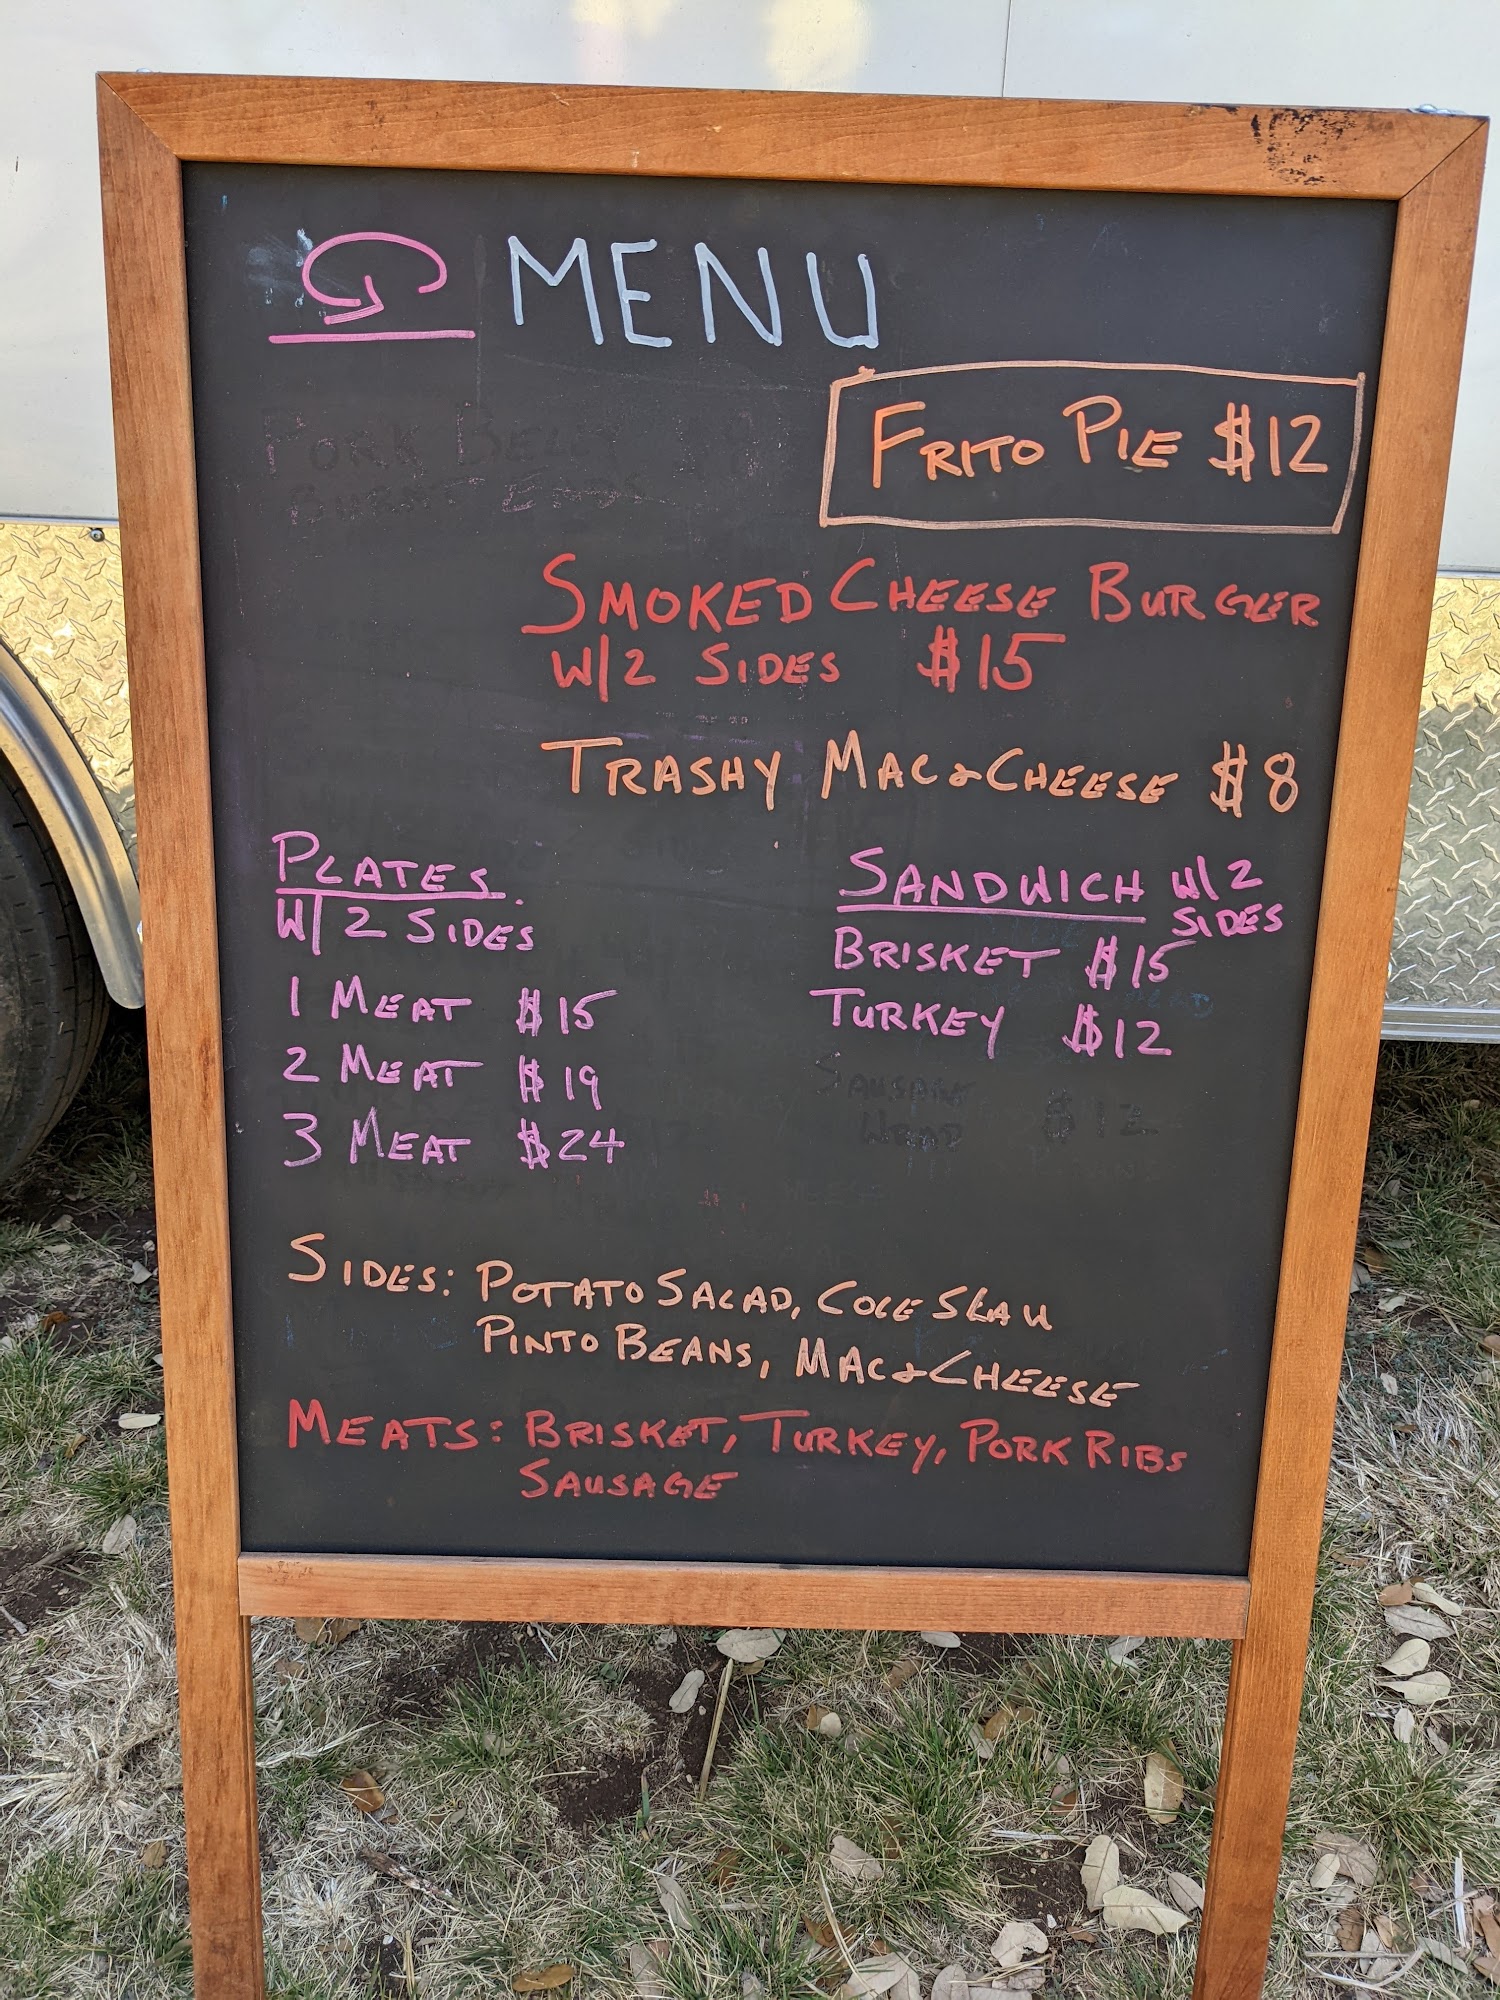 MENU
FRITO PIE $12
PORK BELLY
BURNT ENDS
SMOKED CHEESE BURGER
W/2 SIDES $15
TRASHY MAC & CHEESE $8
PLATES
W/2 SIDES
1 MEAT $15
2 MEAT $19
3 MEAT $24
SANDWICH W/2
SIDES
BRISKET $15
TURKEY $12
SAUSAGE
WRAP $12
SIDES: POTATO SALAD, COLE SLAW
PINTO BEANS, MAC & CHEESE
MEATS: BRISKET, TURKEY, PORK RIBS
SAUSAGE